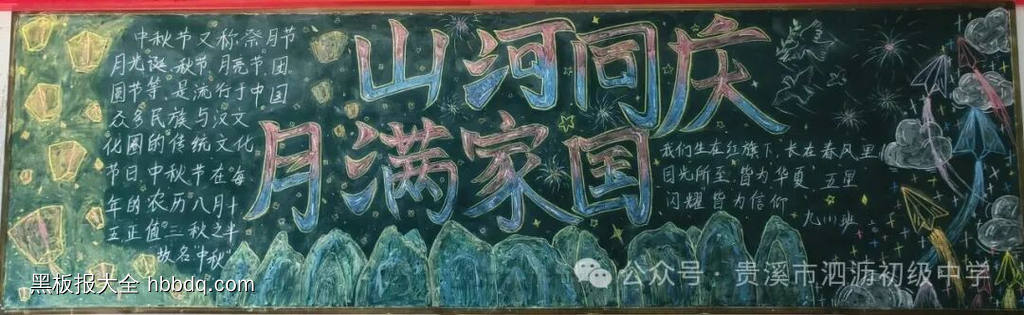 中秋节又称祭月节
月光诞 秋节 月亮节 团
圆节等 是流行于中国
众多民族与汉文
化圈的传统文化
节日 中秋节在每
年的农历八月十
五正值三秋之半
故名"中秋"
山河同庆
月满家国
我们生在红旗下 长在春风里
目光所至 皆为华夏 五星
闪耀 皆为信仰
九(1)班
黑板报大全 hbbdq.com
公众号·贵溪市泗沥初级中学